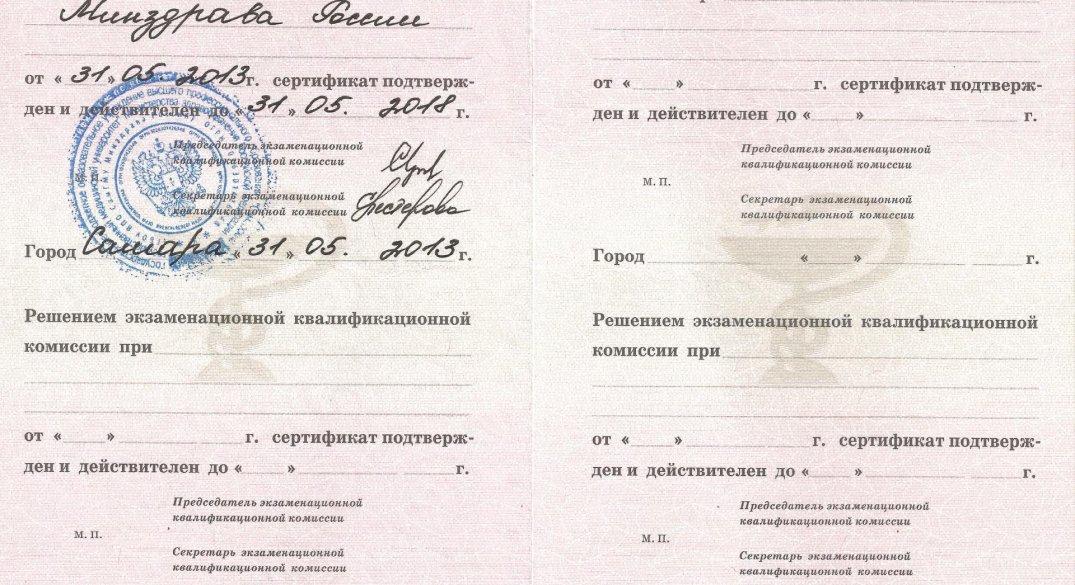 Минздрава России
от « 31 » 05. 2013 г. сертификат подтверж-
ден и действителен до « 31 » 05. 2018 г.
Председатель экзаменационной
квалификационной комиссии
М. П.
Секретарь экзаменационной
квалификационной комиссии Нестерова
Город Самара « 31 » 05. 2013 г.
Решением экзаменационной квалификационной
комиссии при
от « » г. сертификат подтверж-
ден и действителен до « » г.
Председатель экзаменационной
квалификационной комиссии
М. П.
Секретарь экзаменационной
квалификационной комиссии
от « » г. сертификат подтверж-
ден и действителен до « » г.
Председатель экзаменационной
квалификационной комиссии
М. П.
Секретарь экзаменационной
квалификационной комиссии
Город « » г.
Решением экзаменационной квалификационной
комиссии при
от « » г. сертификат подтверж-
ден и действителен до « » г.
Председатель экзаменационной
квалификационной комиссии
М. П.
Секретарь экзаменационной
квалификационной комиссии